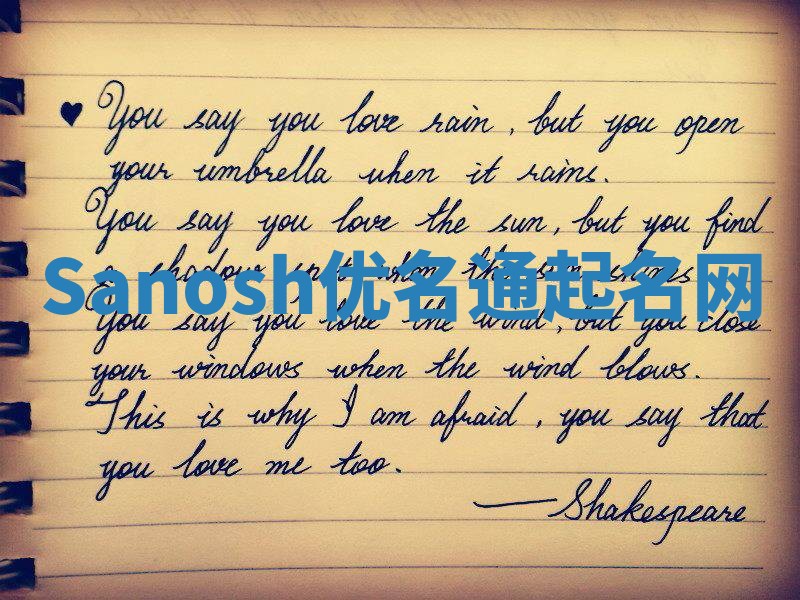 ♥ You say you love rain, but you open
your umbrella when it rains.
You say you love the sun, but you find
a shadow spot when the sun shines
Sanosh优名通起名网
You say you love the wind, but you close
your windows when the wind blows.
This is why I am afraid, you say that
you love me too.
—Shakespeare